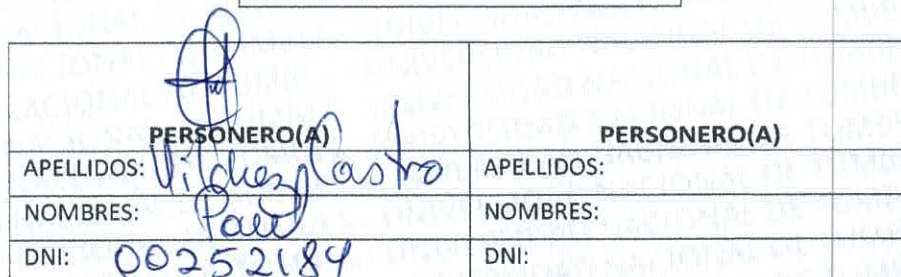 PERSONERO(A) PERSONERO(A)
APELLIDOS: Vilchez Castro APELLIDOS:
NOMBRES: Paul NOMBRES:
DNI: 00252184 DNI: